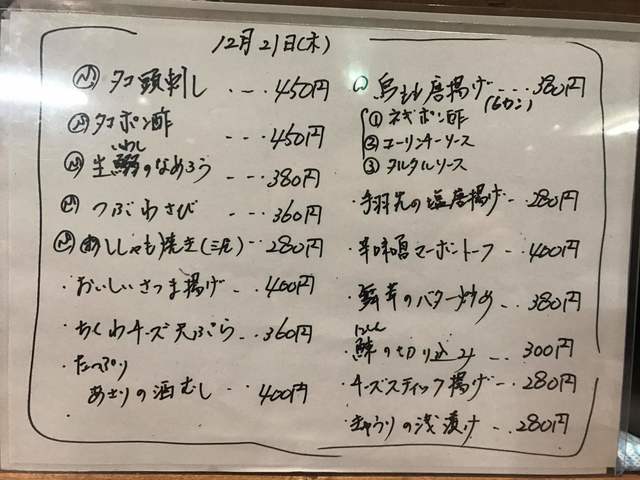 12月21日(木)
タコ頭刺し --- 450円
タコポン酢 --- 450円
いわし
生鰯のなめろう --- 380円
つぶわさび --- 360円
ししゃも焼き(三尾) --- 280円
・おいしいさつま揚げ --- 400円
・ちくわチーズ天ぷら --- 360円
・たっぷり
あさりの酒むし --- 400円
鳥もも唐揚げ --- 380円
①ネギポン酢
②ユーリンチーソース
③タルタルソース
・手羽先の塩唐揚げ --- 280円
・辛味噌マーボートーフ --- 400円
・舞茸のバター炒め --- 380円
にしん
・鰊の切り込み --- 300円
・チーズスティック揚げ --- 280円
・きゅうりの浅漬け --- 280円